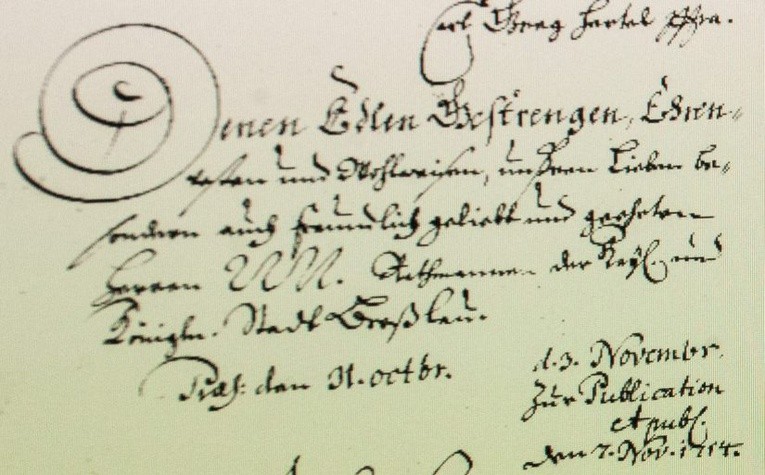 Carl Georg Hertel
Denen Edlen Gestrengen, Ehren-
vesten und Wohlweisen, unßern Lieben be-
sondern auch freundlich geliebt und geehrten
Herren N N. Rathmannen der Kayß. und
Königln. Stadt Breßlau.
den 31. octbr.
d. 3. Novembr.
Zur Publication
et publ.
den 7. Nov. 1714.